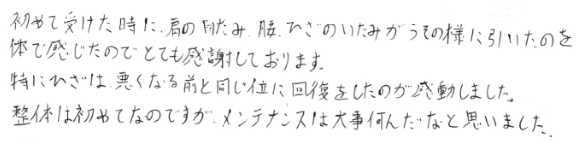 初めて受けた時に、肩の痛み、腰、ひざのいたみがうその様に引いたのを
体で感じたのでとても感謝しております。
特にひざは、悪くなる前と同じ位に回復をしたのが感動しました。
整体は初めてなのですが、メンテナンスは大事何んだなと思いました。